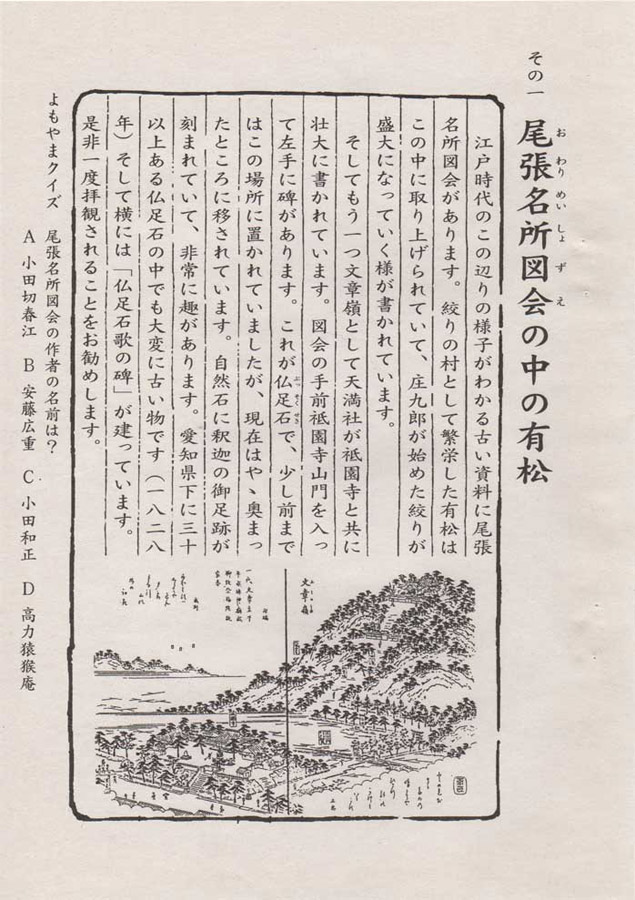 その一 尾張名所図会の中の有松
おわりめいしょずえ
江戸時代のこの辺りの様子がわかる古い資料に尾張
名所図会があります。絞りの村として繁栄した有松は
この中に取り上げられていて、庄九郎が始めた絞りが
盛大になっていく様が書かれています。
そしてもう一つ文章嶺として天満社が祇園寺と共に
壮大に書かれています。図会の手前祇園寺山門を入っ
て左手に碑があります。これが仏足石で、少し前まで
はこの場所に置かれていましたが、現在はやゝ奥まっ
たところに移されています。自然石に釈迦の御足跡が
刻まれていて、非常に趣があります。愛知県下に三十
以上ある仏足石の中でも大変に古い物です(一八二八
年)そして横には「仏足石歌の碑」が建っています。
是非一度拝観されることをお勧めします。
文章嶺
よもやまクイズ 尾張名所図会の作者の名前は?
A 小田切春江 B 安藤広重 C 小田和正 D 高力猿猴庵